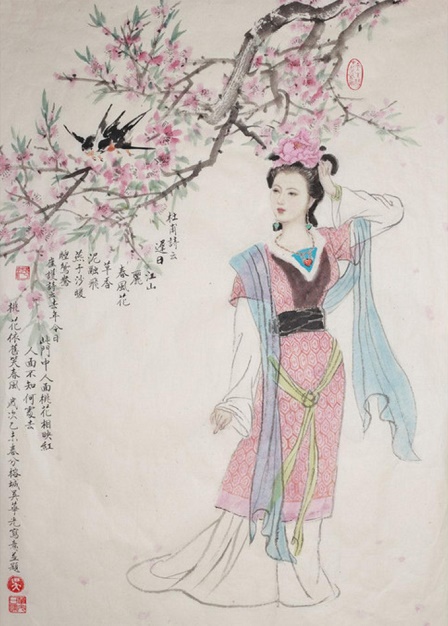 杜甫詩云
遲日
江山
麗
春風花
草香
泥融飛
燕子沙暖
睡鴛鴦
崔護詩云去年今日
此門中人面桃花相映紅
人面不知何處去
桃花依舊笑春風 歲次己未春分榕城 寫意並題